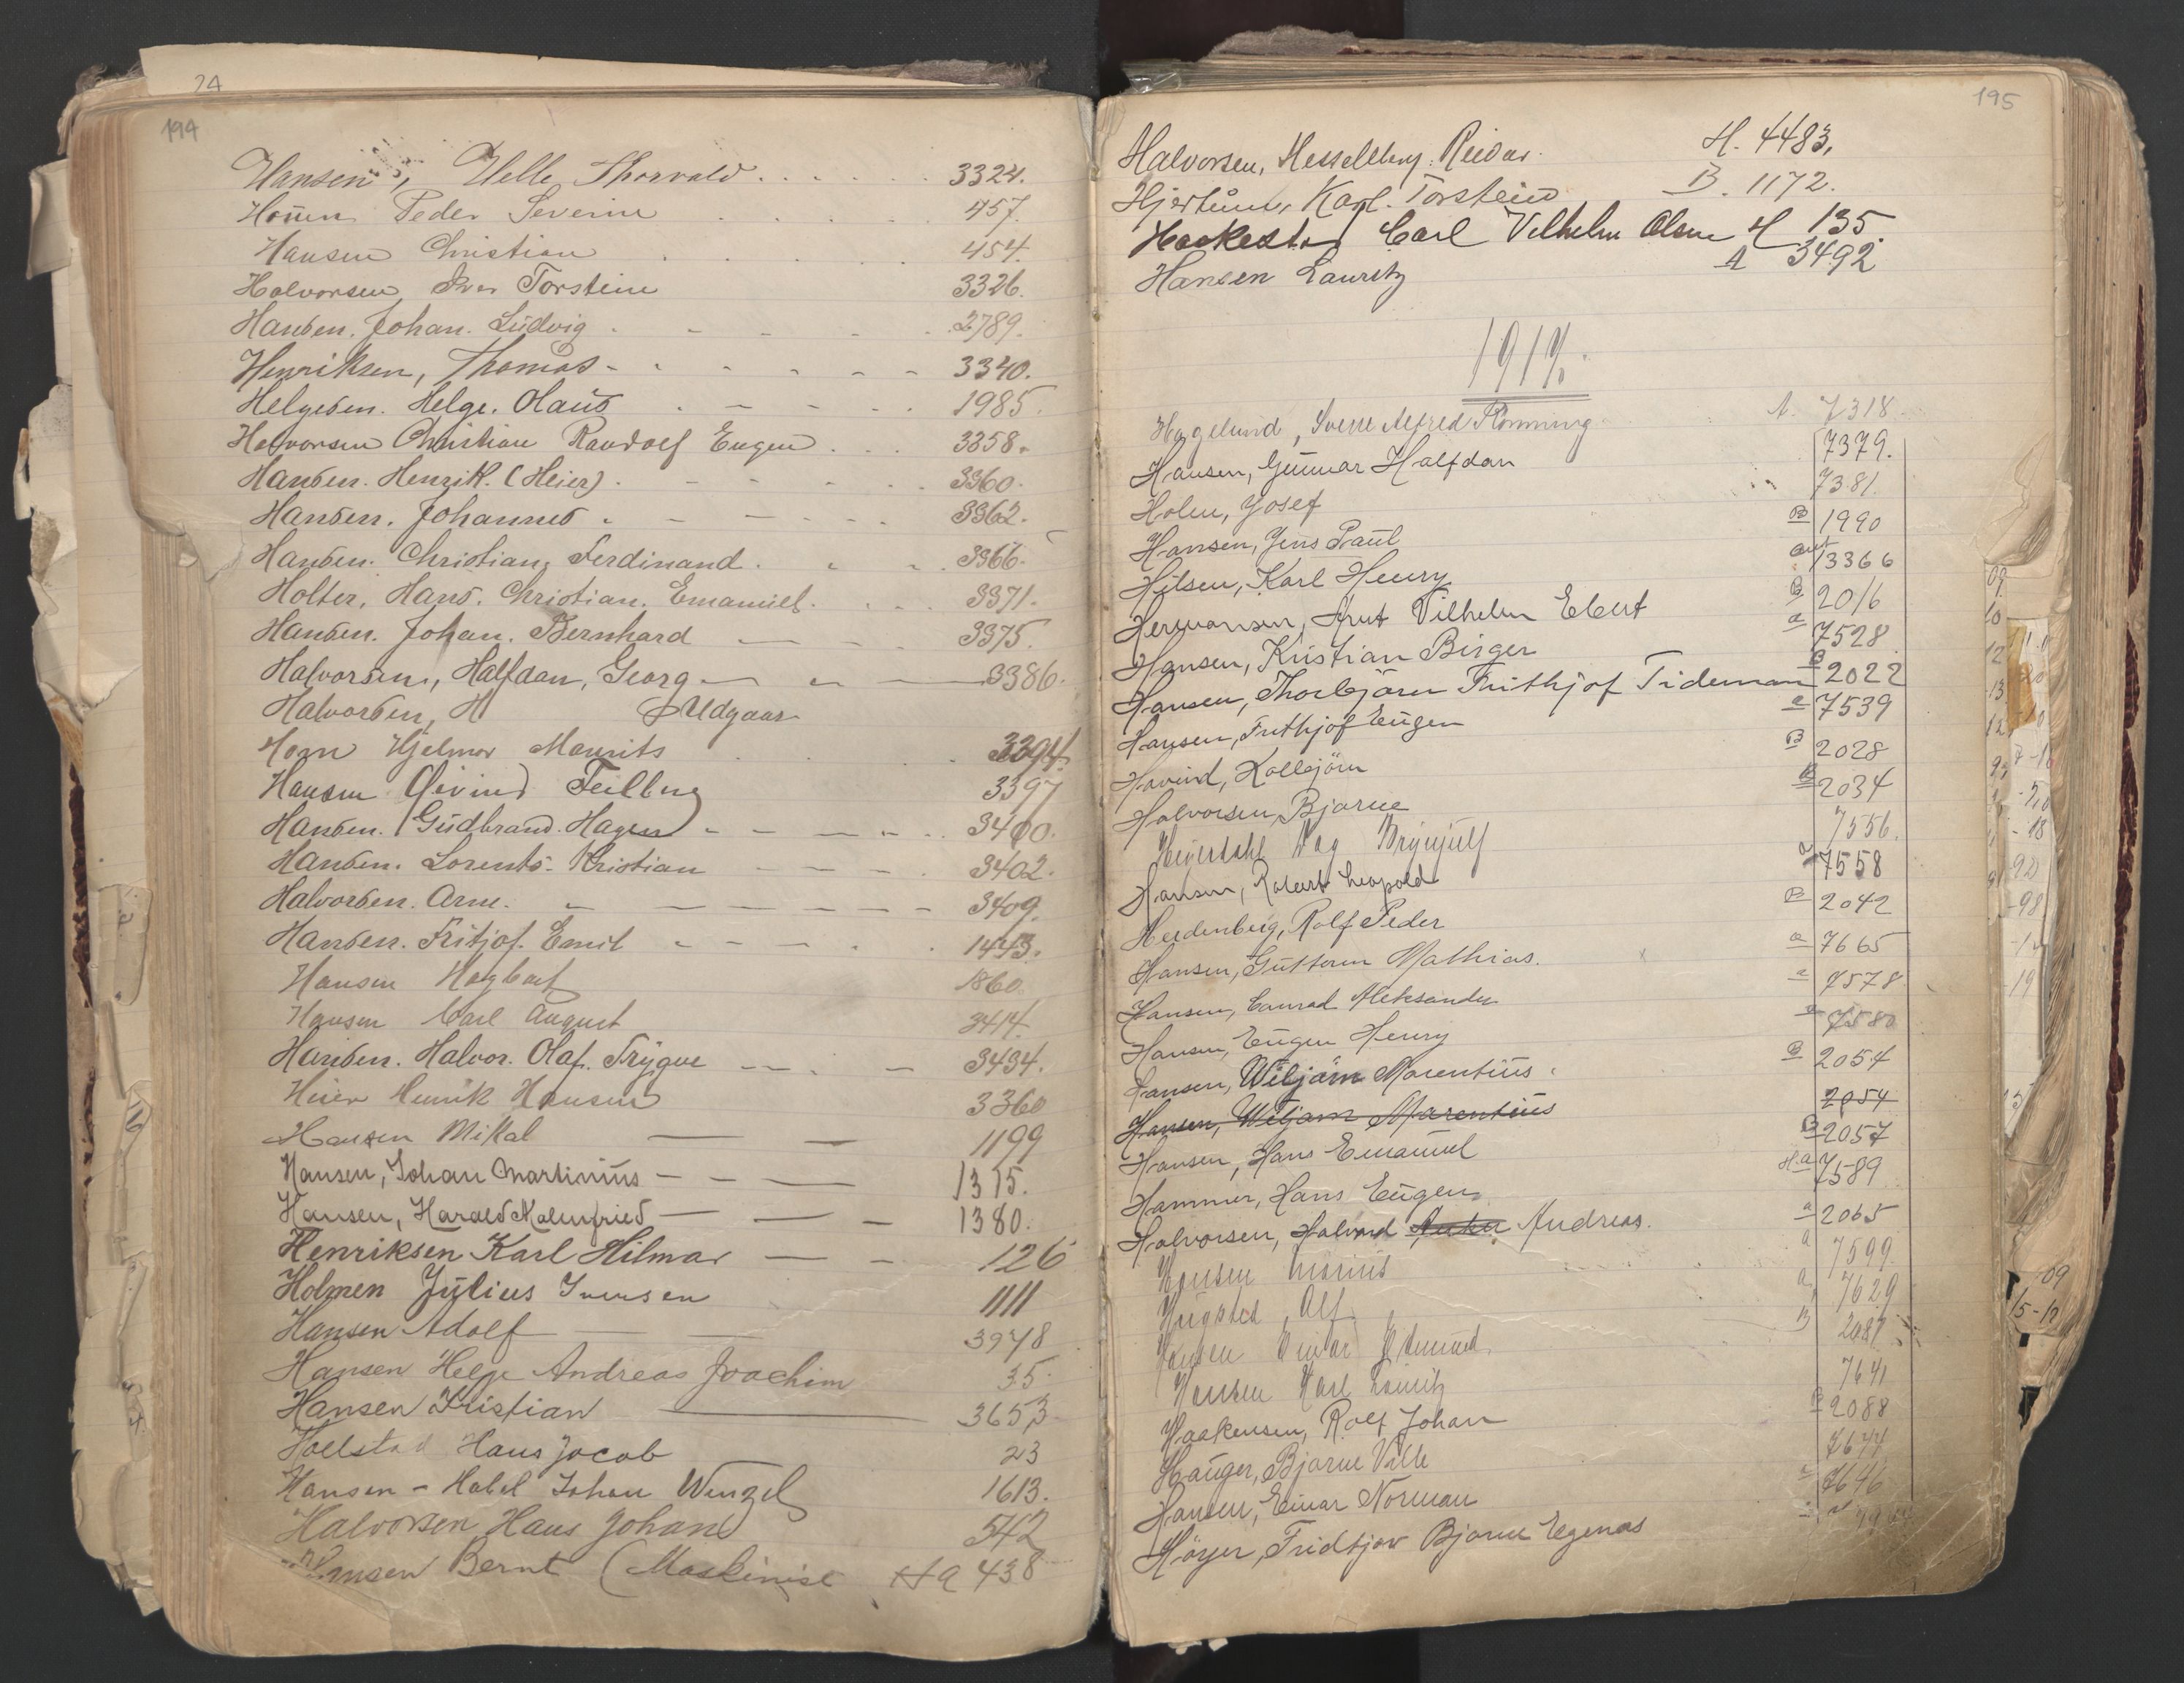 24
194
Hansen, Helle Thorvald . . . . . . 3324.
Honen Peder Severin . . . . 457.
Hansen Christian . . . . . 454.
Halvorsen Iver Torstein 3326.
Hansen. Johan. Ludvig . - - - - . 2789.
Henriksen, Thomas - - - - - - 3340.
Helgesen. Helge. Olaus . - - - . . 1985.
Halvorsen Christian Randolf Eugen . . . 3358.
Hansen. Henrik. (Heier) . - - - . 3360.
Hansen. Johannes . - - - - - 3362.
Hansen. Christian. Ferdinand . - - . 3366.
Holter, Hans. Christian. Emanuel. . . . 3371.
Hansen. Johan. Bernhard — - - 3375.
Halvorsen, Halfdan, Georg — - — 3386.
Halvorsen, H Udgaar
Horn Hjelmar Maurits . . . 3394.
Hansen Øivind Feilberg 3397
Hansen. (Gudbrand. Hagen) - - - - - - 3400.
Hansen. Lorents. Kristian - - - . 3402.
Halvorsen. Arne. - — - - - - - 3409.
Hansen. Fritjof. Emil - - - - . . 1443.
Hansen Hagbart 1860.
Hansen Carl August 3414.
Hansen. Halvor. Olaf. Trygve — - . - 3434.
Heier Henrik Hansen 3360
Hansen Mikal — — 1199
Hansen, Johan Martinius — - - — 1315.
Hansen, Harald Malmfried — — - 1380.
Henriksen Karl Hilmar — - 126
Holmen Julius Iversen 1111
Hansen Adolf — — 3978
Hansen Helge Andreas Joachim 35.
Hansen Kristian — 3653
Hollstad Hans Jacob 23
Hansen - Habel Johan Wenzel 1613.
Halvorsen Hans Johan 542
Hansen Bernt (Maskinist Ha 438
195
Halvorsen, Hesselberg. Reidar. H. 4483.
Karl. Torstein B. 1172.
Carl Vilhelm Olsen H 135.
Hansen Lauritz A 3492
Hagelund, Sverre Alfred Rønning A. 7318.
Hansen, Gunnar Halfdan 7379.
Holm, Josef 7381
Hansen, Jens Paul B 1990
Hilsen, Karl Henry 13366
Hermansen, Arnt Vilhelm Ebert B 2016
Hansen, Kristian Birger a 7528
Hansen, Thorbjörn Frithjof Tideman B 2022
Hansen, Frithjof Eugen a 7539
Havind, Kolbjörn B 2028
Halvorsen, Bjarne B 2034
Heyerdahl Dag Brynjulf 7556.
Hansen, Robert Leopold a 7558
Hedenberg, Rolf Peder B 2042
Hansen, Guttorm Mathias. a 7665
Hansen, Conrad Aleksander a 7578
Hansen, Eugen Henry a 7580
Hansen, Wiljam Marentius. B 2054
Hansen, Wiljam Marentius 2054
Hansen, Hans Emanuel B 2057
Hammer, Hans Eugen Ha 7589
Halvorsen, Halvard Andreas. a 2065
Hansen Marius a 7599.
Hugsted, Alf a 7629
Hansen Einar Edmund. B 2087
Hansen Karl Lauritz 7641
Haakensen, Rolf Johan B 2088
Hauger, Bjarne Ville 7644
Hansen, Einar Norman a 7646
Höyer, Fridtjov Bjarne Egenæs